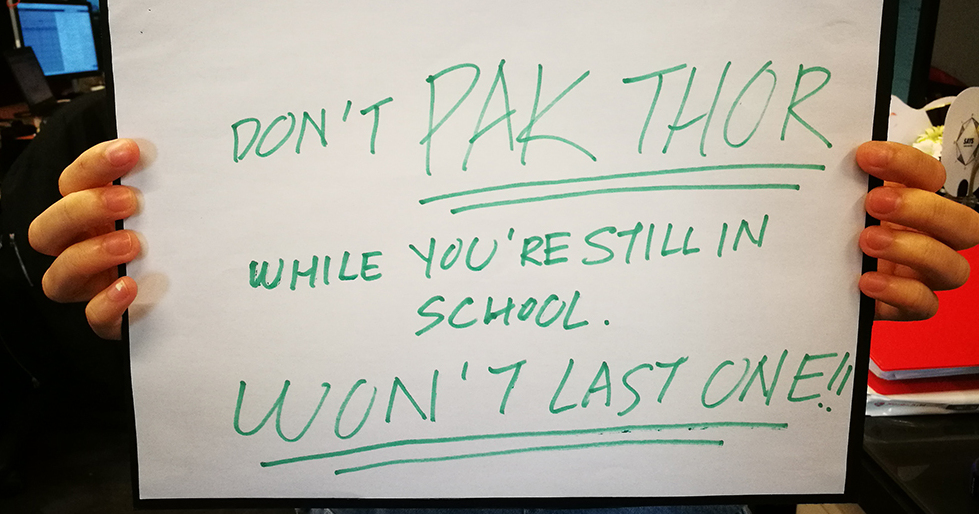 DON'T PAK THOR
WHILE YOU'RE STILL IN
SCHOOL.
WON'T LAST ONE!!